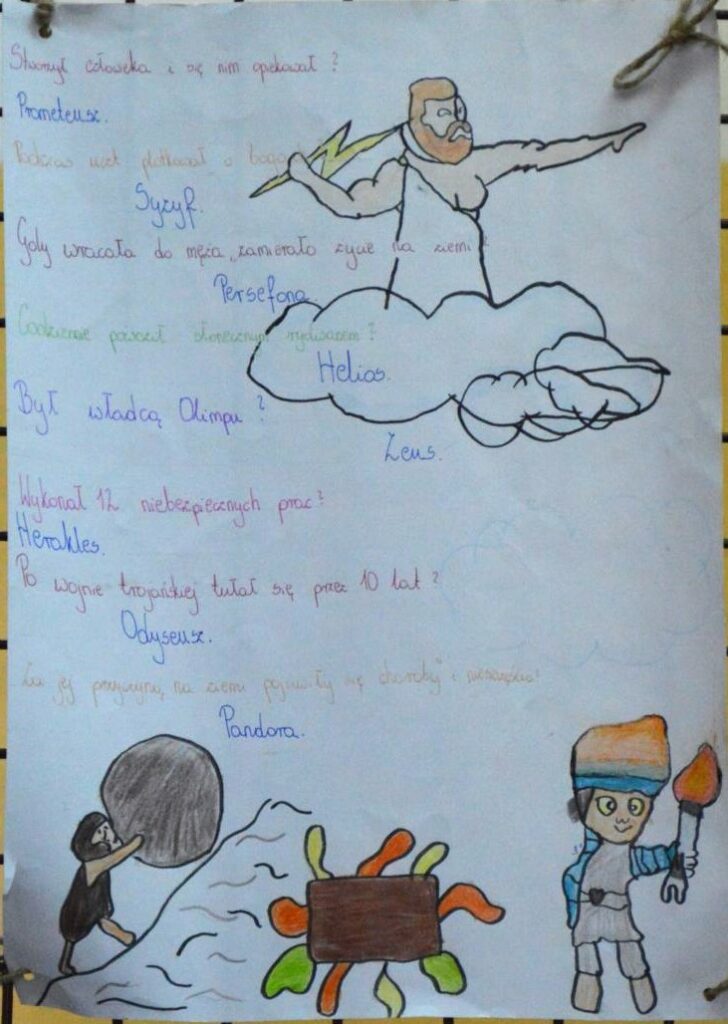 Stworzył człowieka i się nim opiekował?
Prometeusz.
Podczas uczt plotkował o
Syzyf.
Gdy wracała do męża, zamierało życie na ziemi?
Persefona.
Codziennie powoził słonecznym rydwanem?
Helios.
Był władcą Olimpu?
Zeus.
Wykonał 12 niebezpiecznych prac?
Herakles.
Po wojnie trojańskiej tułał się przez 10 lat?
Odyseusz.
Za jej przyczyną na ziemi pojawiły się choroby i nieszczęścia!
Pandora.